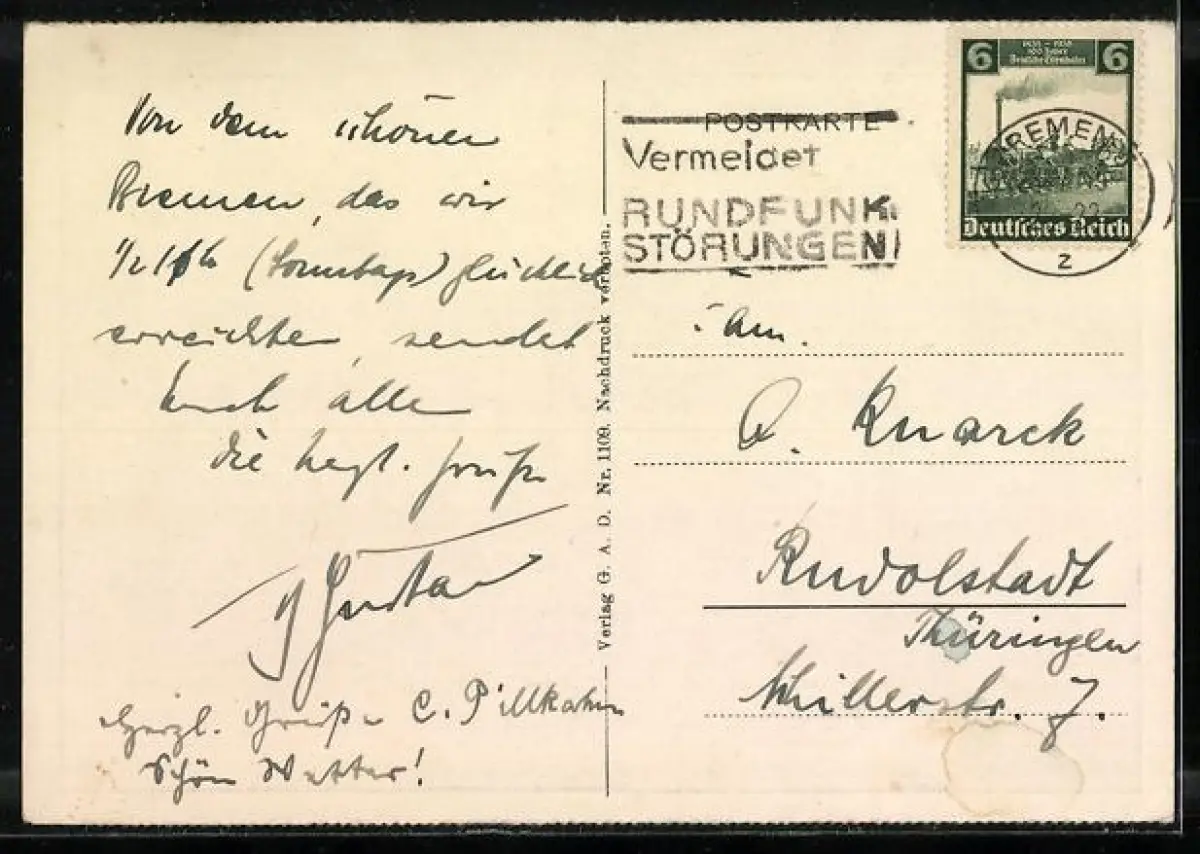 Von dem schönen
Bremen, das wir
1/2 1 (Sonntags) glücklich
erreichten, sendet
Euch allen
die hzgl. Grüße
Gustav
Herzl. Grüße C. Pillkahn
Schön Wetter!
Verlag G. A. D. Nr. 1109. Nachdruck verboten.
POSTKARTE
Vermeidet
RUNDFUNK
STÖRUNGEN
6 1835 - 1935 6
100 Jahre
Deutsche Eisenbahn
Deutsches Reich
BREMEN 5
z
Fam.
O. Knarck
Rudolstadt
Thüringen
Schillerstr. 7.